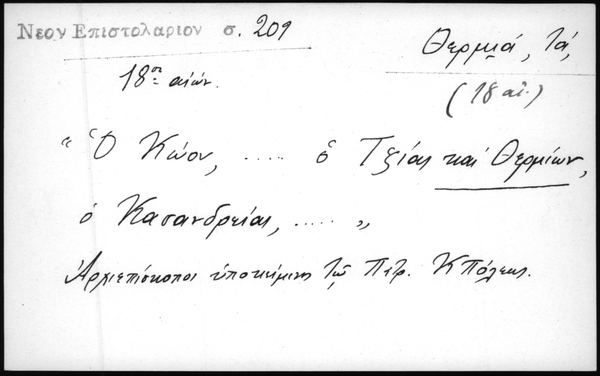 Νεον Επιστολαριον σ. 209
Θερμιά, τά,
18ος αιών.
(18 αἰ.)
"Ὁ Κώου, ..... ὁ Τζίας καὶ Θερμίων,
ὁ Κασανδρείας, ..... "
Ἀρχιεπίσκοποι ὑποκείμενοι τῷ Πατρ. ΚΠόλεως.